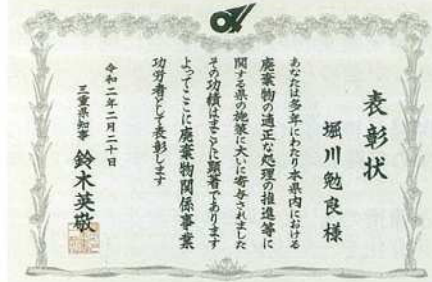 表彰状
堀川勉良様
あなたは多年にわたり本県内における
廃棄物の適正な処理の推進等に
関する県の施策に大いに寄与されました
その功績はまことに顕著であります
よってここに廃棄物関係事業
功労者として表彰します
令和二年二月二十日
三重県知事 鈴木英敬